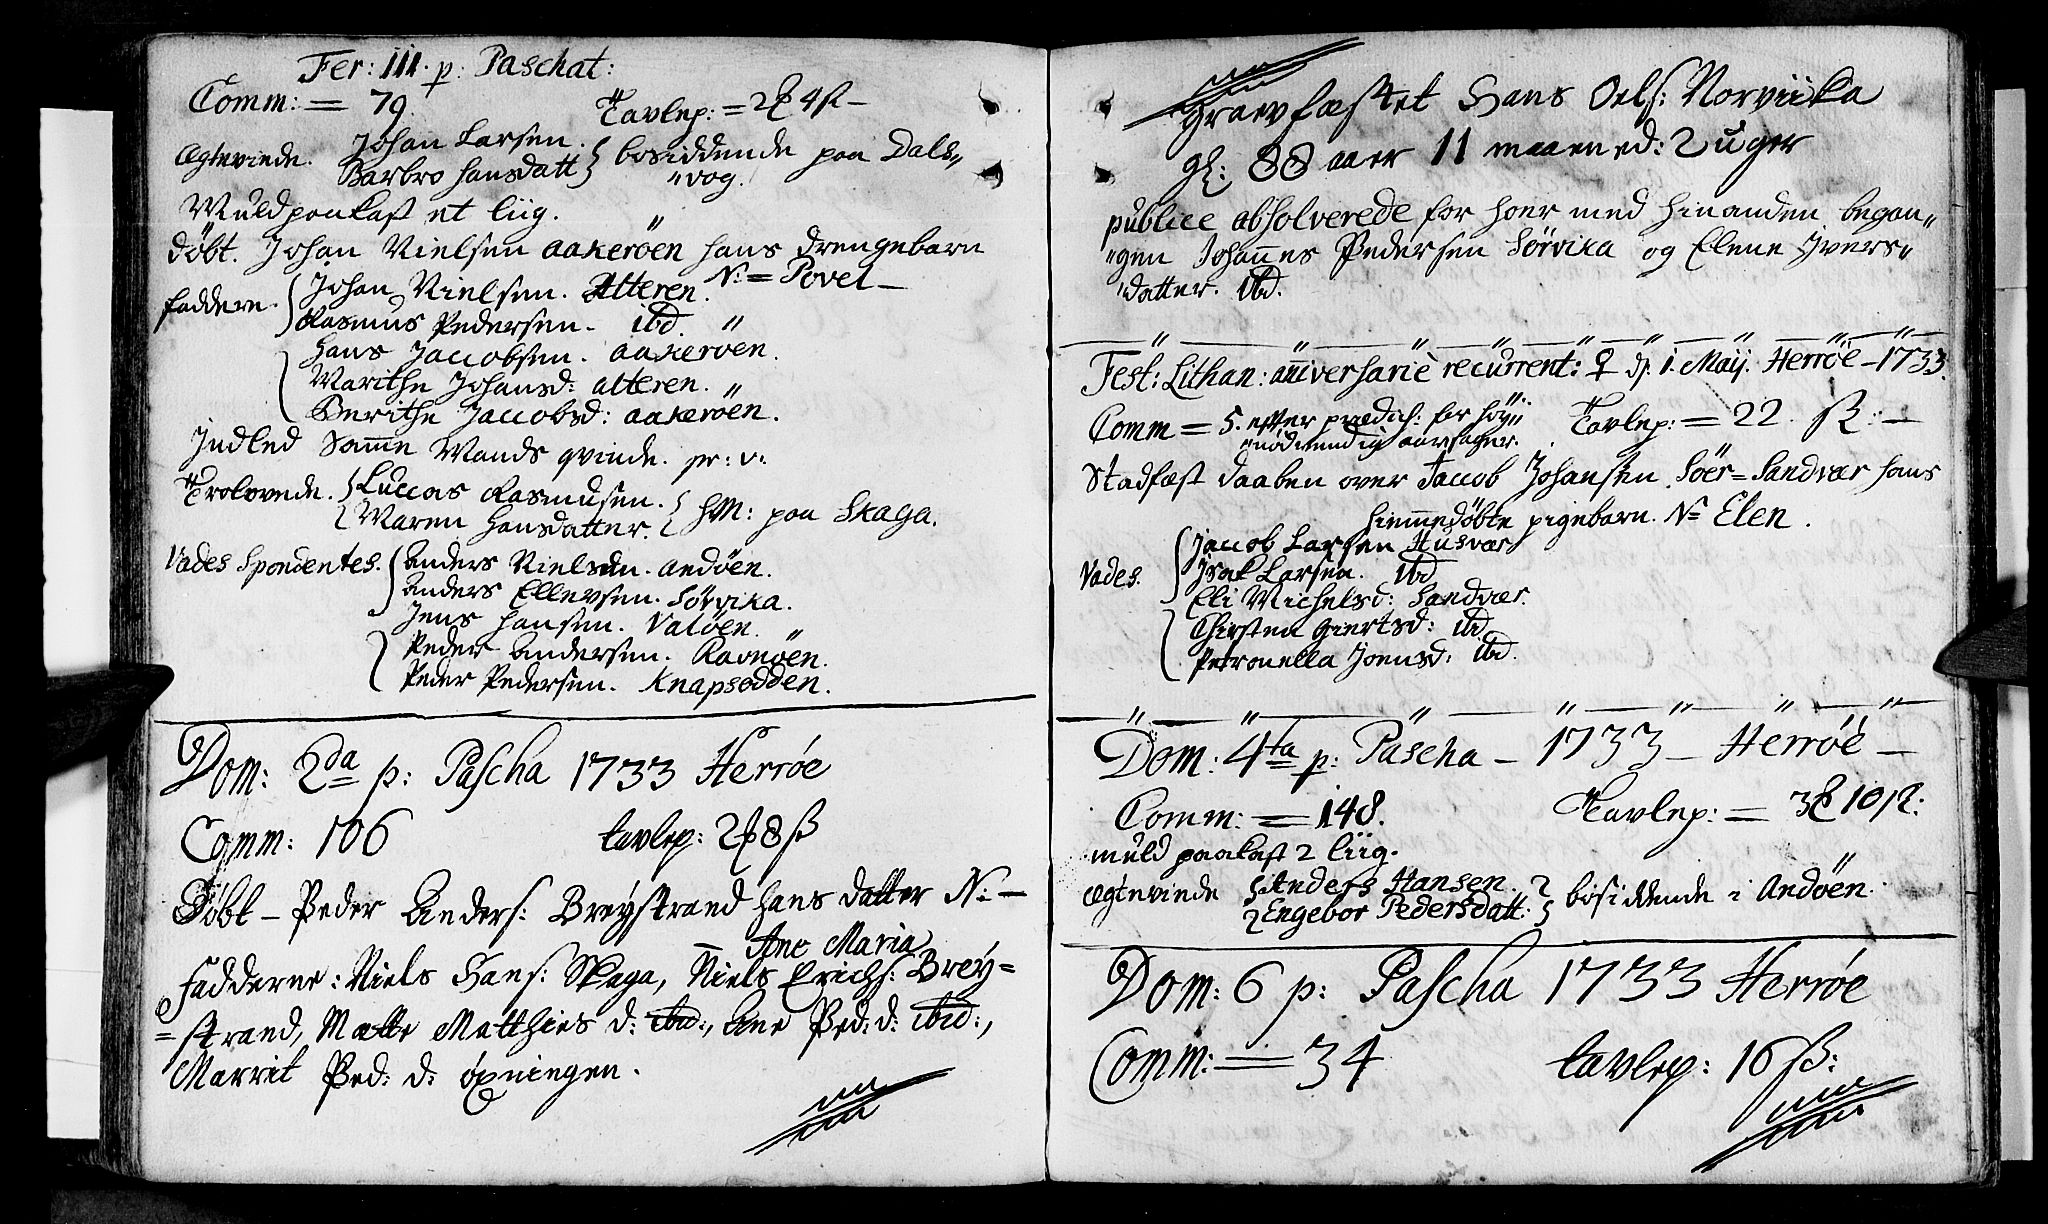 Fer: III. p: Paschat:
Comm: = 79. Tavlep: = 2 4 ß –
Ægteviede. Johan Larsen.
Barbro Hansdatt bosiddende paa Dals„
„vog.
Muldpaakast et liig.
døbt. Johan Nielsen aakerøen hans drengebarn
N: = Povel –
faddere. Johan Nielsen. Alteren.
Rasmus Pedersen. ibd.
Hans Jaccobsen. aakerøen.
Marithe Johansd: alteren.
Berithe Jaccobsd: aakerøen.
Indled samme Mands qvinde.
Trolovede. Luccas Rasmusen.
Maren Hansdatter. HM: paa Skaga.
Vades Spondentes. Anders Nielsen. andøen.
Anders Ellevsen. Sørvika.
Jens Hansen. Valøen.
Peder Andersen. Ravnøen.
Peder Pedersen. Knapsødden.
Dom: 2da p: Pascha 1733 Herrøe
Comm: 106 tavlep: 2 8 ß
Døbt – Peder Anders: Breystrand hans datter N: –
– Ane Maria
Fadderne: Niels Hans: Skaga, Niels Erichs: Brey=
=strand, Mette Matthies d: ibid:, Ane Ped: d: ibid:,
Marrit Ped: d: øxningen.
Graevfæstet Hans Oels: Norviika
gl: 88 aaer 11 maaned: 2 uger
publice absolverede for hoer med hinanden began„
„gen Johannes Pedersen Sørvika og Elene Ivers„
„datter. ibd.
Fest: Lithan: aniversarie recurrent: ♀ d. 1. Maij. Herrøe – 1733.
Comm = 5. efter prædich: for høy„ Tavlep: = 22. ß: –
„nødvendig aarsager.
Stadfæst daaben over Jacob Johansen. Søer=Sandvær hans
hiemmedøbte pigebarn. N= Elen.
Vades. Jaccob Larsen Husvær
Isak Larsen. ibd
Eli Michelsd: Sandvær.
Chirsten Giertsd: ibd
Petronella Joensd: ibd.
Dom: 4ta p: Pascha – 1733 – Herrøe –
Comm: = 148. Tavlep: = 3 10 ß:
muld paakast 2 liig.
Ægteviede Anders Hansen.
Engebor Pedersdatt: bosiddende i Andøen.
Dom: 6 p: Pascha 1733 Herrøe
Comm: = 34 tavlep: 16 ß: